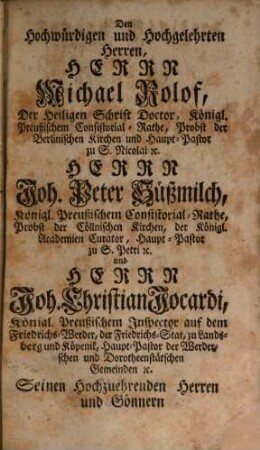 Den
Hochwürdigen und Hochgelehrten
Herren,
HERRN
Michael Rolof,
Der Heiligen Schrift Doctor, Königl.
Preußischem Consistorial-Rathe, Probst der
Berlinischen Kirchen und Haupt-Pastor
zu S. Nicolai ꝛc.
HERRN
Joh. Peter Süßmilch,
Königl. Preußischem Consistorial-Rathe,
Probst der Cöllnischen Kirchen, der Königl.
Academien Curator, Haupt-Pastor
zu S. Petri ꝛc.
und
HERRN
Joh. Christian Jocardi,
Königl. Preußischem Inspector auf dem
Friedrichs-Werder, der Friedrichs-Stat, zu Lands-
berg und Köpenik, Haupt-Pastor der Werder-
schen und Dorotheenstätschen
Gemeinden ꝛc.
Seinen Hochzuehrenden Herren
und Gönnern